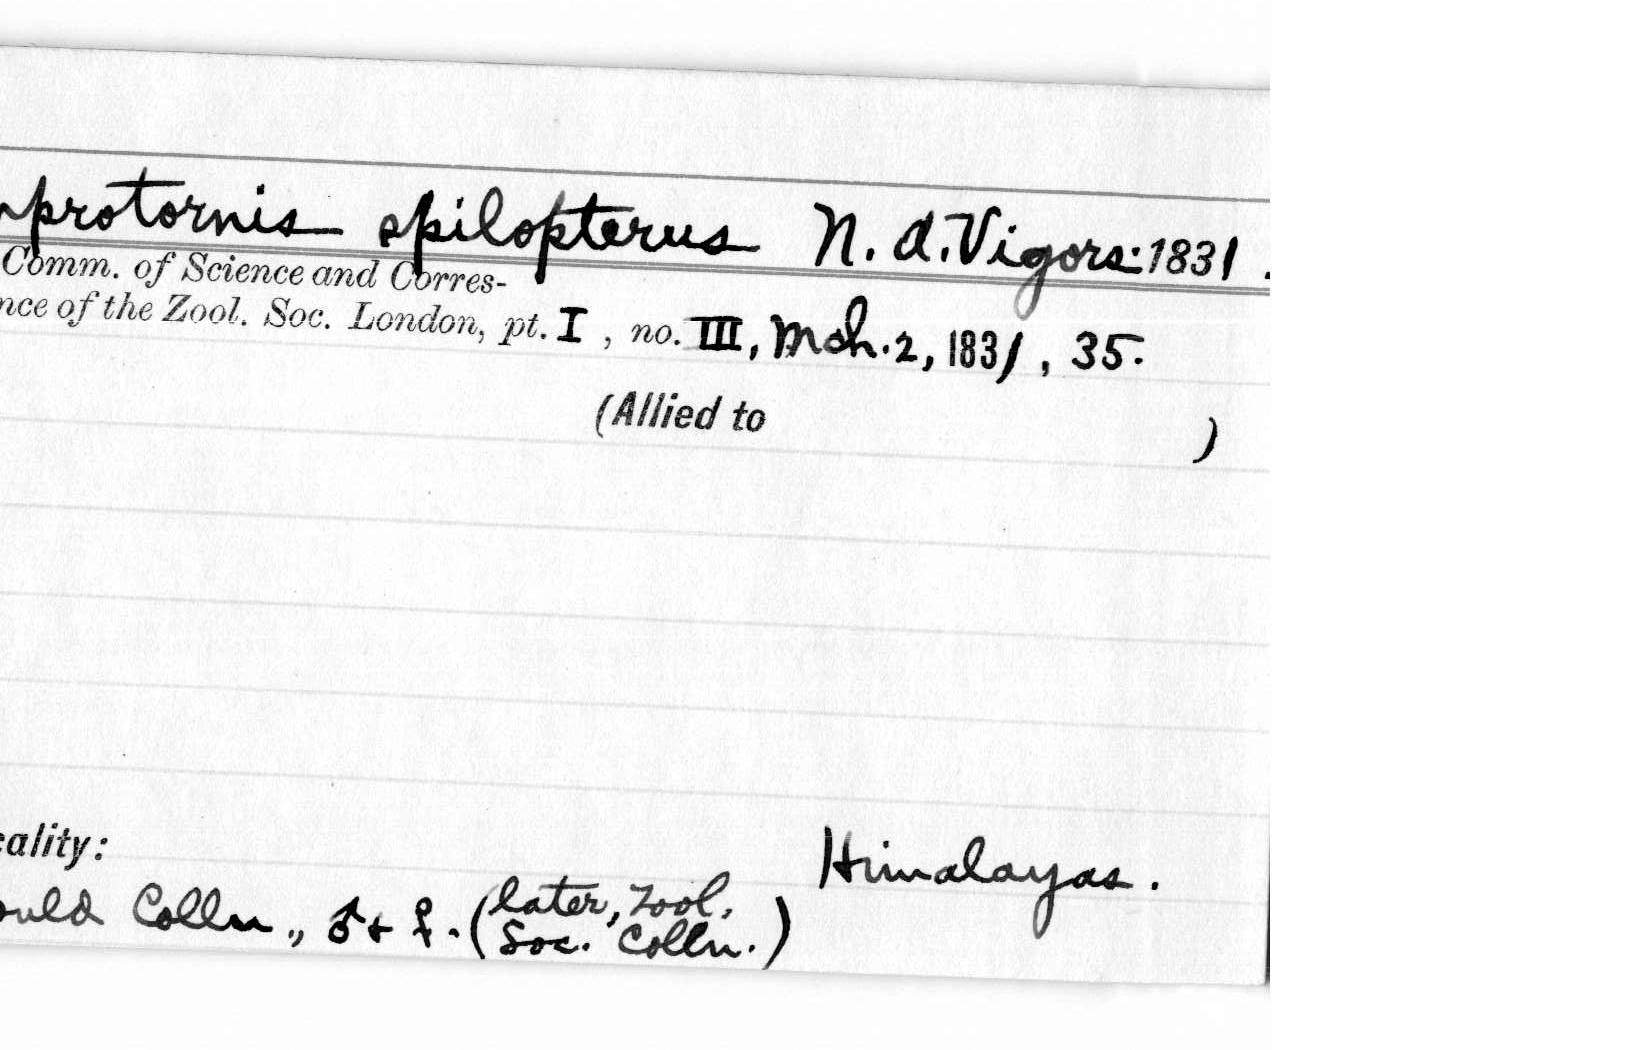 mprotornis spilopterus N. A. Vigors: 1831.
Comm. of Science and Corres-
nce of the Zool. Soc. London, pt. I, no. III, Mch. 2, 1831, 35.
(Allied to )
cality:
Himalayas.
ould Colln., ♂ + ♀. (later, Zool.
Soc. Colln.)